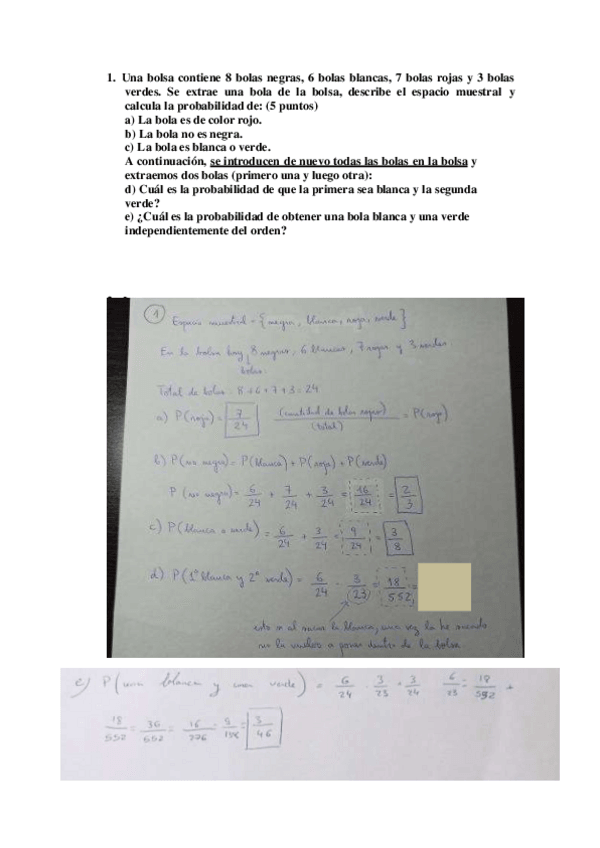 1. Una bolsa contiene 8 bolas negras, 6 bolas blancas, 7 bolas rojas y 3 bolas
verdes. Se extrae una bola de la bolsa, describe el espacio muestral y
calcula la probabilidad de: (5 puntos)
a) La bola es de color rojo.
b) La bola no es negra.
c) La bola es blanca o verde.
A continuación, se introducen de nuevo todas las bolas en la bolsa y
extraemos dos bolas (primero una y luego otra):
d) Cuál es la probabilidad de que la primera sea blanca y la segunda
verde?
e) ¿Cuál es la probabilidad de obtener una bola blanca y una verde
independientemente del orden?
1 Espacio muestral = {negra, blanca, roja, verde}
En la bolsa hay 8 negras, 6 blancas, 7 rojas y 3 verdes
bolas.
Total de bolas: 8+6+7+3 = 24
a) P(roja) = 7/24 (cantidad de bolas rojas)/(total) = P(roja)
b) P(no negra) = P(blanca) + P(roja) + P(verde)
P(no negra) = 6/24 + 7/24 + 3/24 = 16/24 = 2/3
c) P(blanca o verde) = 6/24 + 3/24 = 9/24 = 3/8
d) P(1º blanca y 2º verde) = 6/24 · 3/23 = 18/552 =
esto es al sacar la blanca, una vez la he sacado
no la vuelvo a poner dentro de la bolsa
e) P(una blanca y una verde) = 6/24 · 3/23 + 3/24 · 6/23 = 18/552 +
18/552 = 36/552 = = 3/46